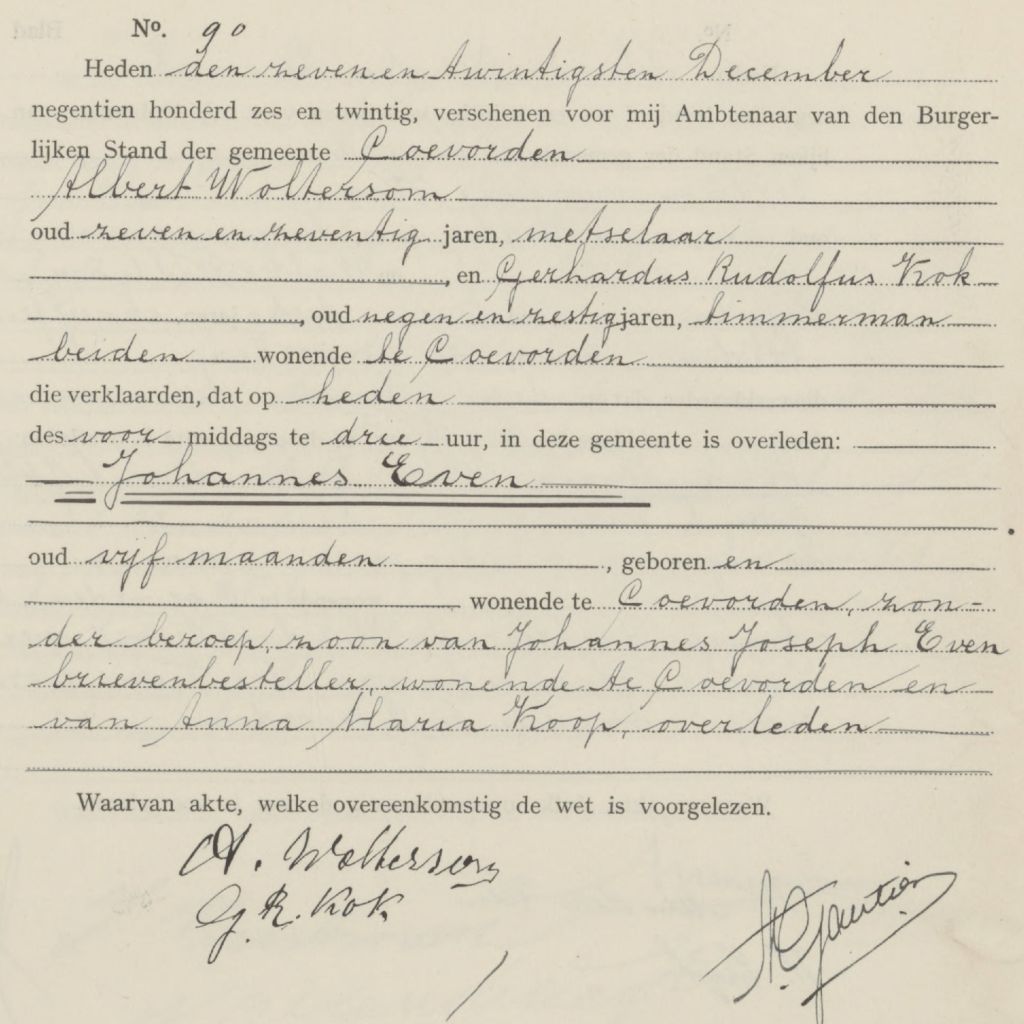 No. 90
Heden den zeven en twintigsten December
negentien honderd zes en twintig, verschenen voor mij Ambtenaar van den Burger-
lijken Stand der gemeente Coevorden
Albert Woltersom
oud zeven en zeventig jaren, metselaar
, en Gerhardus Rudolfus Kok
, oud negen en zestig jaren, timmerman
beiden wonende te Coevorden
die verklaarden, dat op heden
des voor middags te drie uur, in deze gemeente is overleden:
Johannes Even
oud vijf maanden , geboren en
wonende te Coevorden, zon-
der beroep, zoon van Johannes Joseph Even
brievenbesteller, wonende te Coevorden en
van Anna Maria Koop, overleden
Waarvan akte, welke overeenkomstig de wet is voorgelezen.
A. Woltersom
G. R. Kok